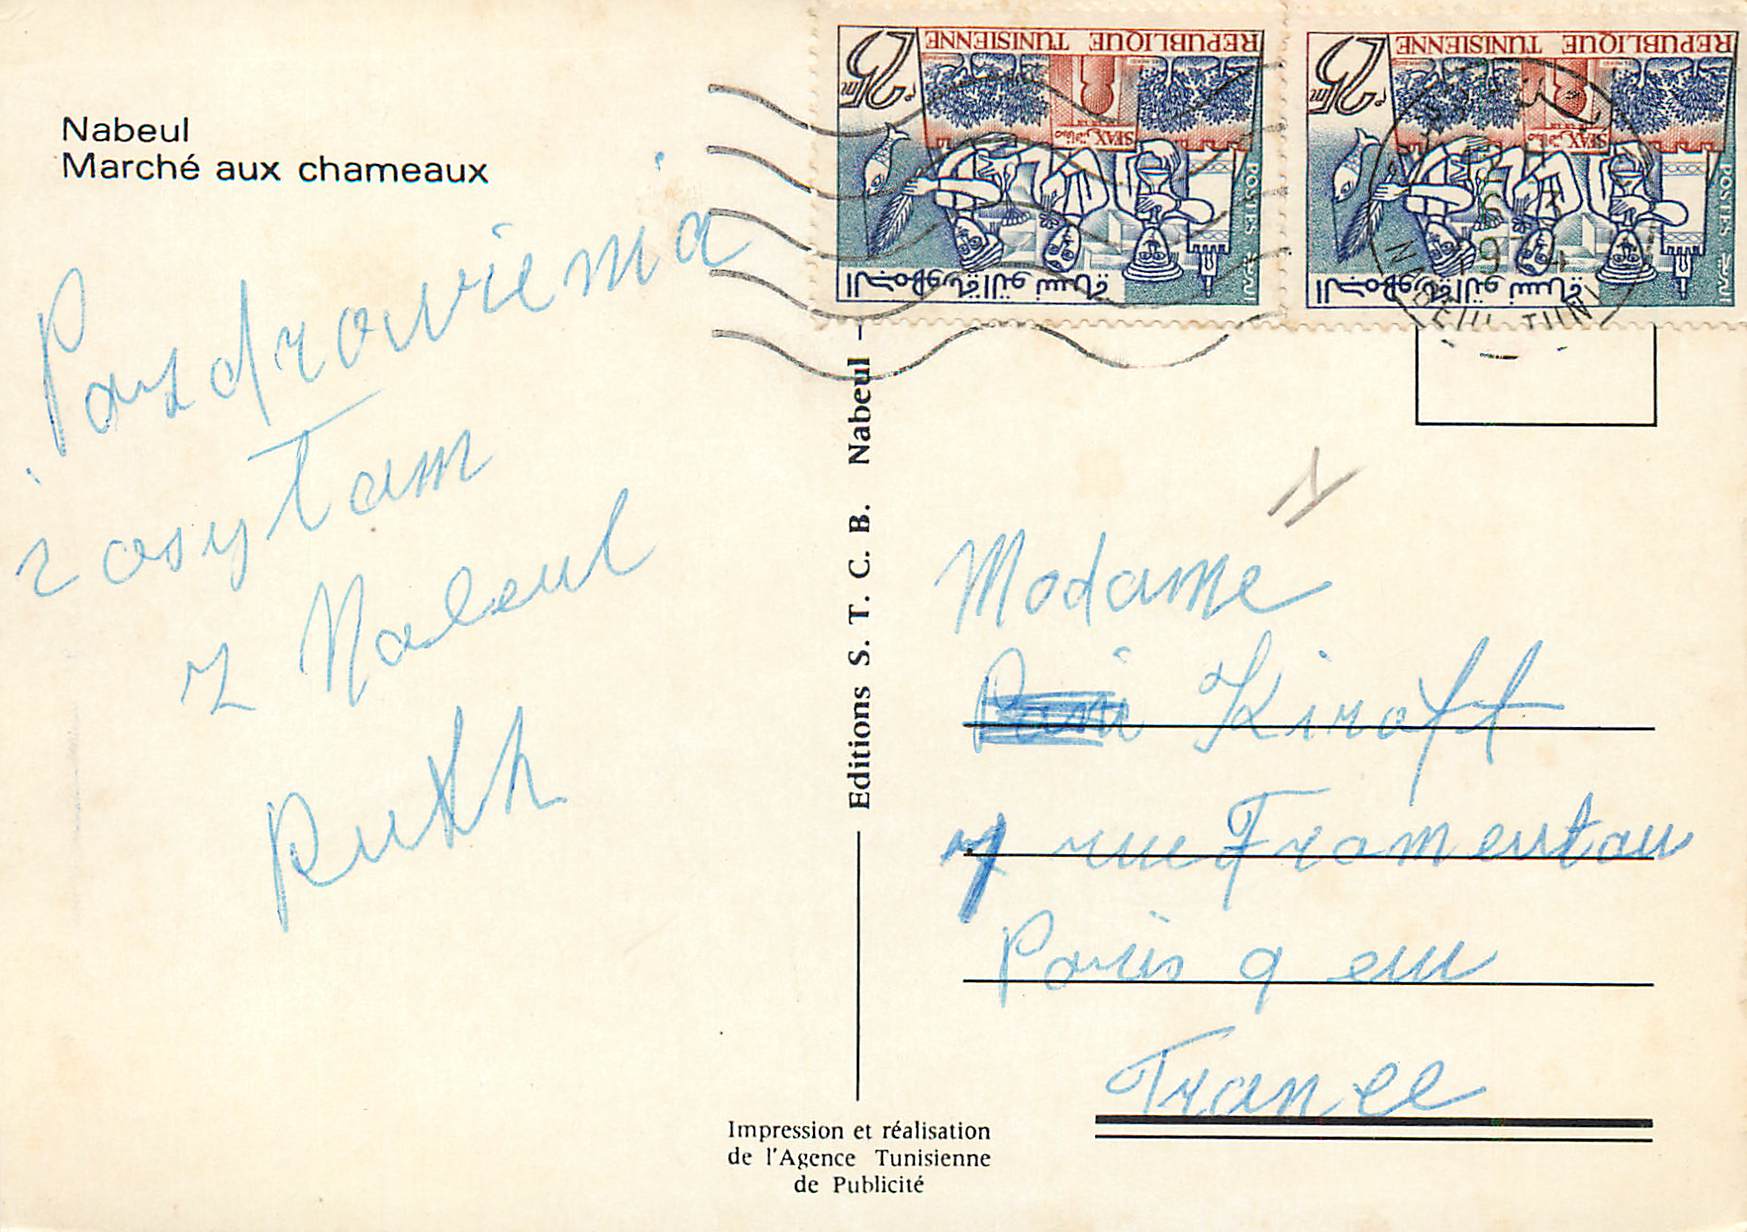 Nabeul
Marché aux chameaux
Pozdrowienia
zasyłam
z Nabeul
Ruth
Editions S. T. C. B. Nabeul
Impression et réalisation
de l'Agence Tunisienne
de Publicité
REPUBLIQUE TUNISIENNE
25m
SFAX صفاقس
POSTES البريد
الجمهورية التونسية
REPUBLIQUE TUNISIENNE
25m
SFAX صفاقس
POSTES البريد
الجمهورية التونسية
Madame
Kiraff
7 rue Fromentau
Paris 9 em
France